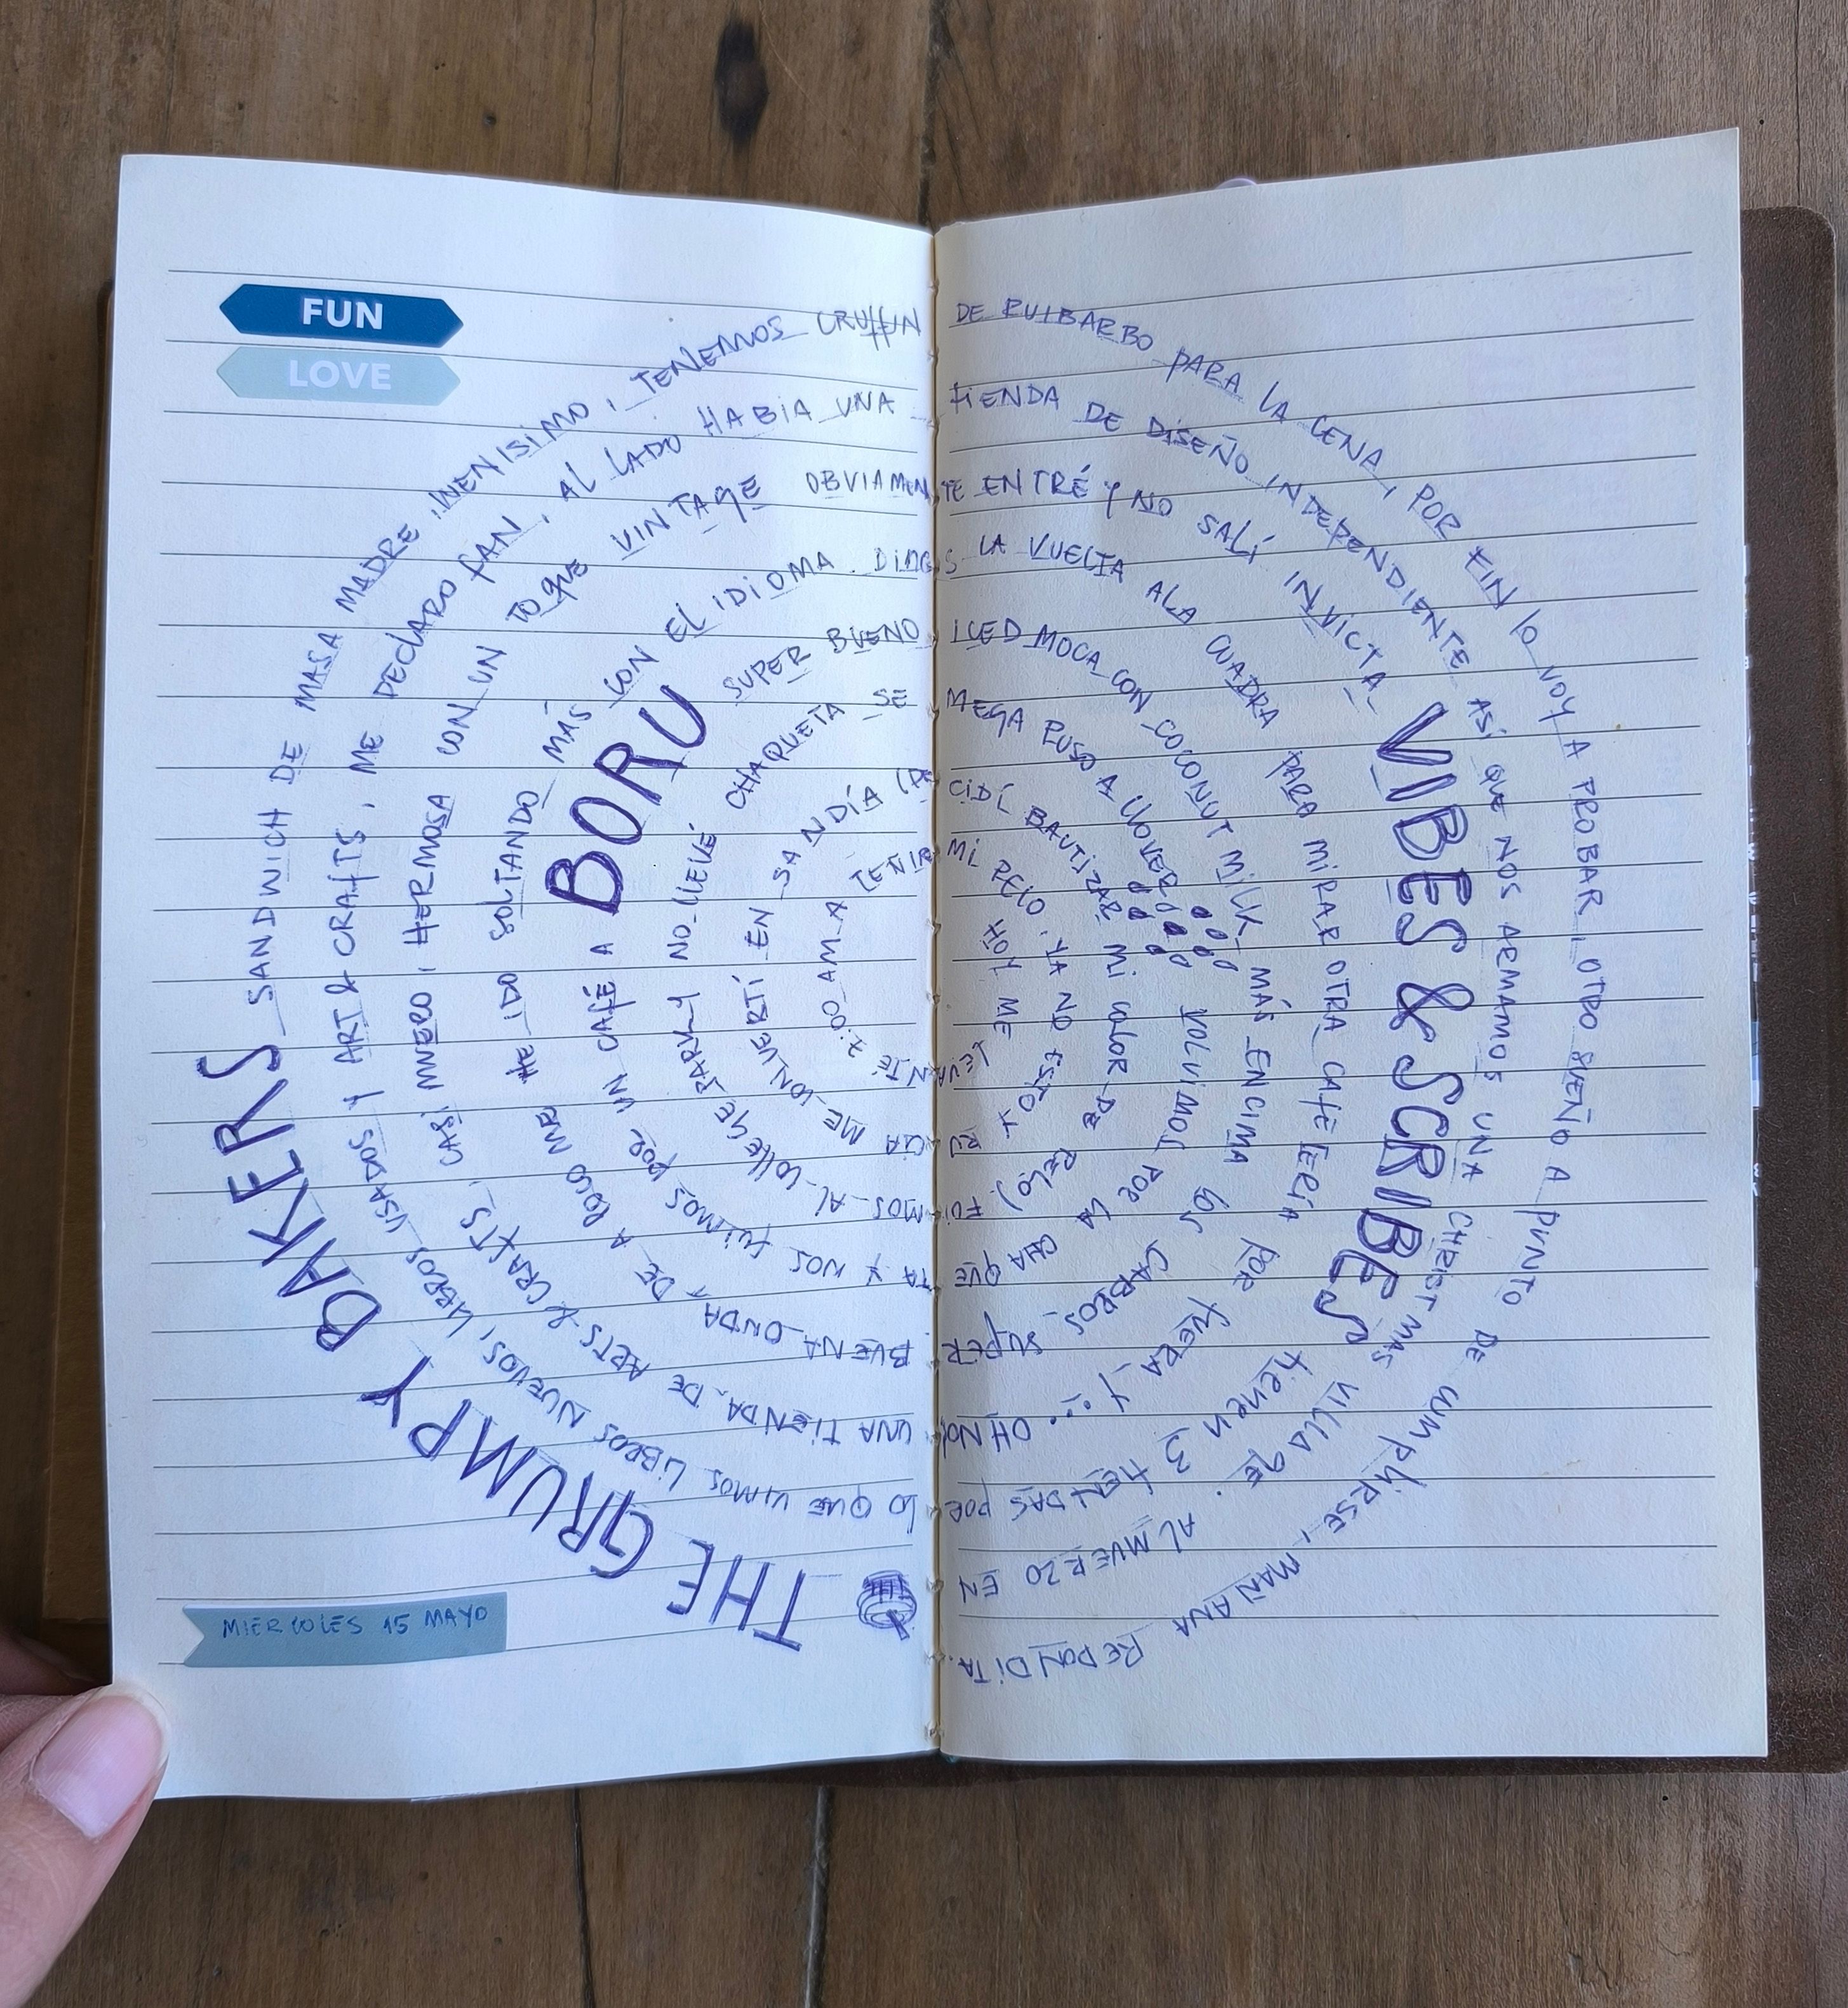 FUN
LOVE
MIERCOLES 15 MAYO
HOY ME LEVANTÉ 7:00 AM A TEÑIR
MI PELO, YA NO ESTOY RUCIA ME CONVERTÍ EN SANDÍA (DE
CIDÍ BAUTIZAR MI COLOR DE PELO). FUIMOS AL COLLEGE PARK Y NO LLEVÉ CHAQUETA SE
MEGA PUSO A LLOVER VOLVIMOS POR LA CHAQUETA Y NOS FUIMOS POR UN CAFÉ A BORU SUPER BUENO
ICED MOCA CON COCONUT MILK MÁS ENCIMA LOS CABROS SUPER BUENA ONDA Y DE A POCO ME HE IDO SOLTANDO MÁS CON EL IDIOMA. DIMO
S LA VUELTA A LA CUADRA PARA MIRAR OTRA CAFETERÍA POR FUERA Y... OH NO! UNA TIENDA DE ARTS & CRAFTS, CASI MUERO, HERMOSA CON UN TOQUE VINTAGE OBVIAMEN
TE ENTRÉ Y NO SALÍ INVICTA VIBES & SCRIBES TIENEN 3 TIENDAS POR LO QUE VIMOS LIBROS NUEVOS, LIBROS USADOS Y ART & CRAFTS, ME DECLARO FAN, AL LADO HABIA UNA
TIENDA DE DISEÑO INDEPENDIENTE ASÍ QUE NOS ARMAMOS UNA CHRISTMAS VILLAGE. ALMUERZO EN THE GRUMPY BAKERS SANDWICH DE MASA MADRE, WENISIMO, TENEMOS CRUFFIN
DE RUIBARBO PARA LA CENA, POR FIN LO VOY A PROBAR, OTRO SUEÑO A PUNTO DE CUMPLIRSE, MAÑANA REDONDITA.